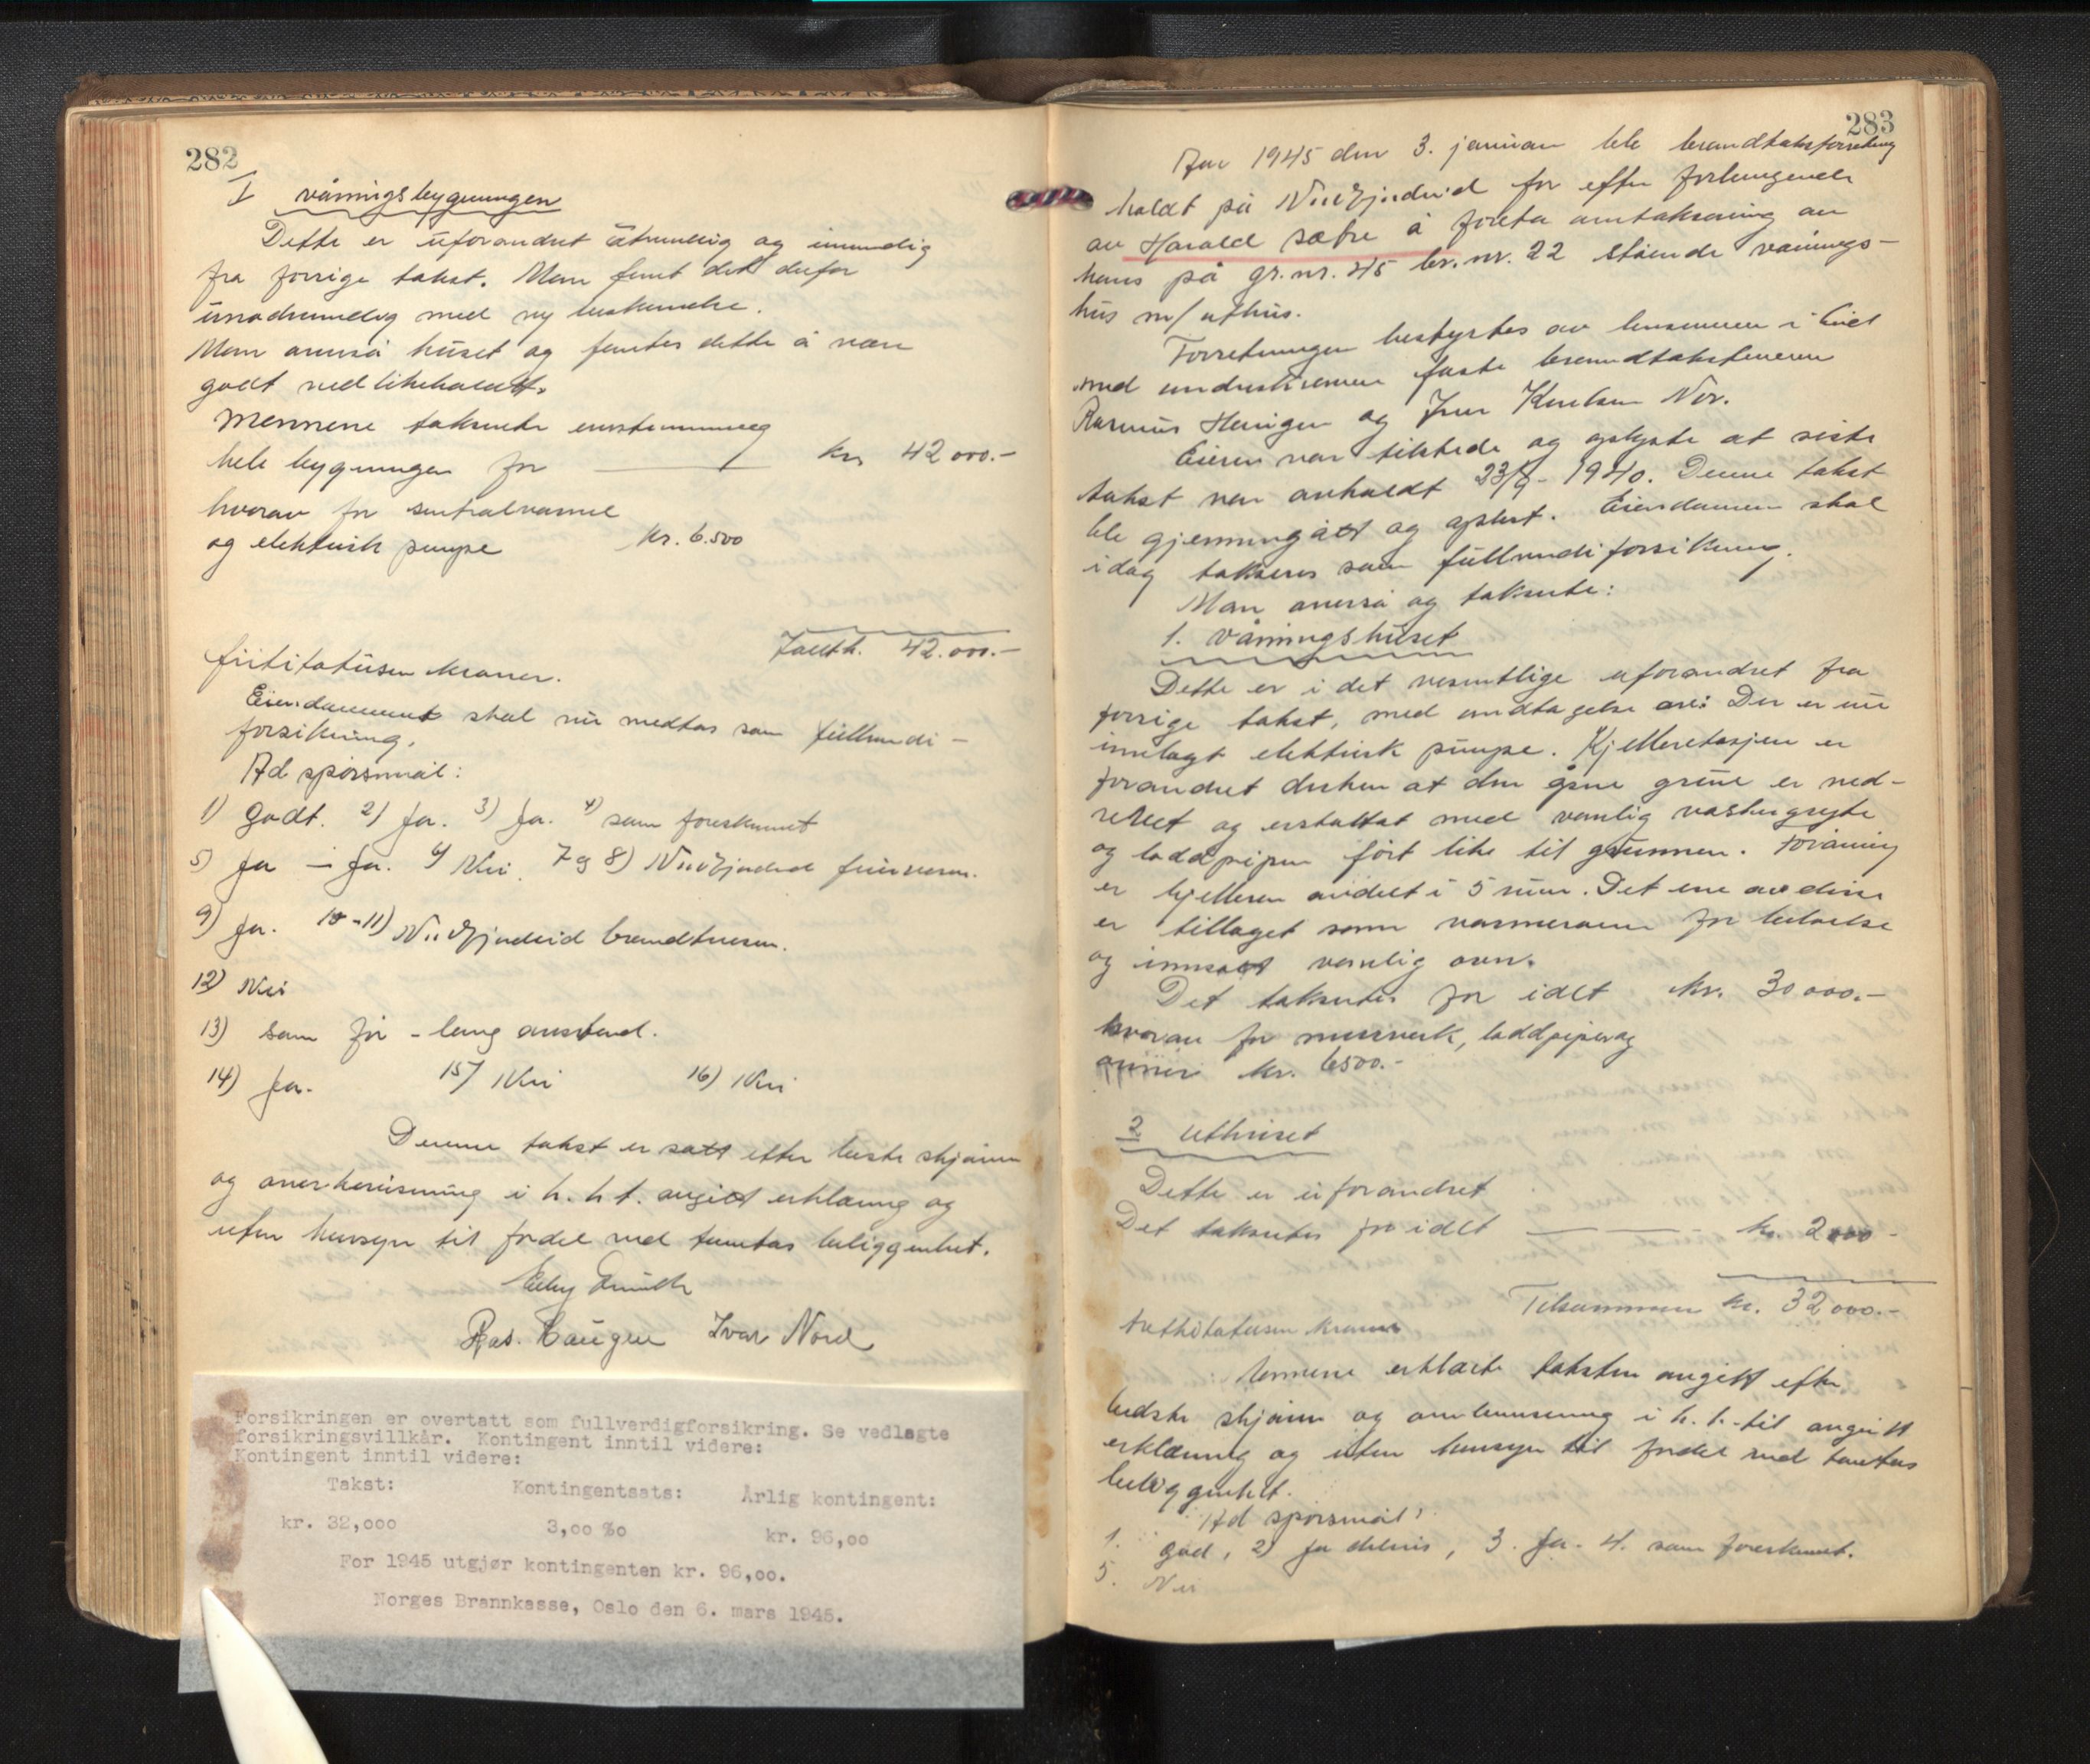 282
I våningsbygningen
Dette er uforandret utvendig og innvendig
fra forrige takst. Man fant det derfor
unødvendig med ny beskrivelse.
Man anså huset og fantes dette å være
godt vedlikeholdt.
Mennene takserte enstemmig
hele bygningen for kr 42 000.-
hvorav for sentralvarme
og elektrisk pumpe kr. 6.500
42.000.-
kroner.
Eiendommen skal nu medtas som fullverdi-
forsikring.
Ad spørsmål:
1) Godt. 2) Ja. 3) Ja. 4) som foreskrevet
5) Ja - Ja. 6) Nei. 7 og 8) Nordfjordeid
9) Ja. 10-11) Nordfjordeid brandvesen.
12) Nei
13) som før - lang avstand.
14) Ja. 15) Nei 16) Nei
Denne takst er satt etter beste skjønn
og overbevisning i h. h t. avgitt erklæring og
uten hensyn til fordel ved tomtas beliggenhet.
Ras. Haugen Ivar Nord
Forsikringen er overtatt som fullverdigforsikring. Se vedlagte
forsikringsvillkår. Kontingent inntil videre:
Kontingent inntil videre:
Takst: Kontingentsats: Årlig kontingent:
kr. 32,000 3,00 %o kr. 96,00
For 1945 utgjør kontingenten kr. 96,oo.
Norges Brannkasse, Oslo den 6. mars 1945.
283
År 1945 den 3. januar ble brandtakstforretning
holdt på Nordfjordeid for efter forlangende
av Harald Sætre å foreta omtaksering av
hans på gr. nr. 45 br. nr. 22 stående vånings-
hus m/ uthus.
Forretningen bestyrtes av lensmannen i Eid
med undertegnede faste brandtakstmenn
Rasmus Haugen og Knutsen Nor.
Eieren var tilstede og oplyste at siste
takst var avholdt 23/9 - 1940. Denne takst
ble gjennomgått og oplest. Eiendommen skal
idag takseres som fullverdiforsikring.
Man anså og takserte:
1. Våningshuset
Dette er i det vesentlige uforandret fra
forrige takst, med undtagelse av: Der er nu
innlagt elektrisk pumpe. Kjelleretasjen er
forandret derhen at den åpne grue er ned-
revet og erstattet med vanlig vaskegryte
og loddpipen ført like til grunnen. Forøvrig
er kjelleren avdelt i 5 rum. Det ene av disse
er tillaget som varmerom for beboelse
og innsatt vanlig ovn.
Det takseres for idet kr. 30 000.-
hvorav for murverk, loddpiper og
kr. 6500.-
2 Uthuset
Dette er uforandret
Det takseres for idet kr. 2000 -
Tilsammen kr. 32 000.-
kroner
Mennene erklærte taksten avgitt efter
bedste skjønn og overbevisning i h. h. til avgitt
erklæring og uten hensyn til fordel ved tomtas
beliggenhet.
Ad spørsmål:
1. god, 2) ja delvis, 3. Ja. 4. som foreskrevet.
5. Nei